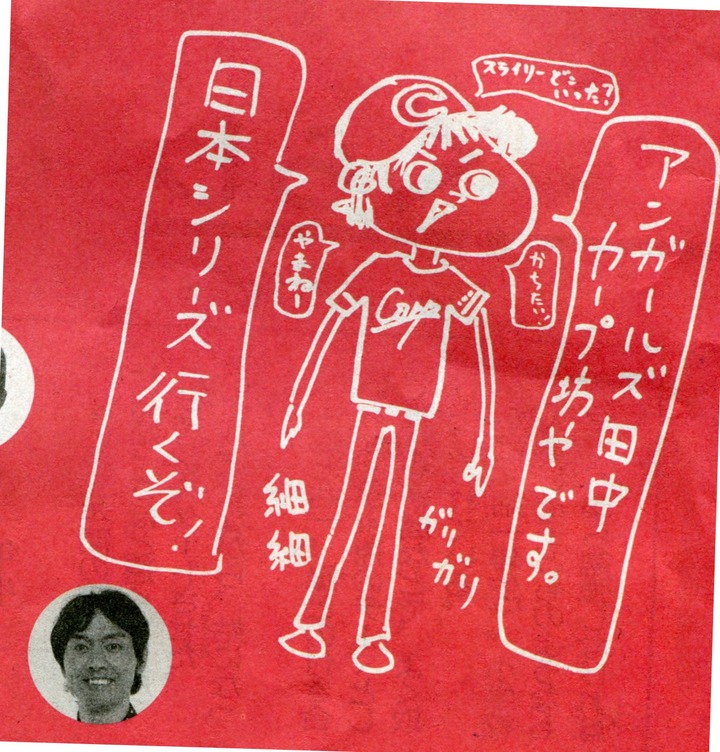 スライリーどこ
いった?
アンガールズ田中
カープ坊やです。
かちたい!
C
Carp
やまねー
日本シリーズ行くぞ!
細細
ガリ
ガリ